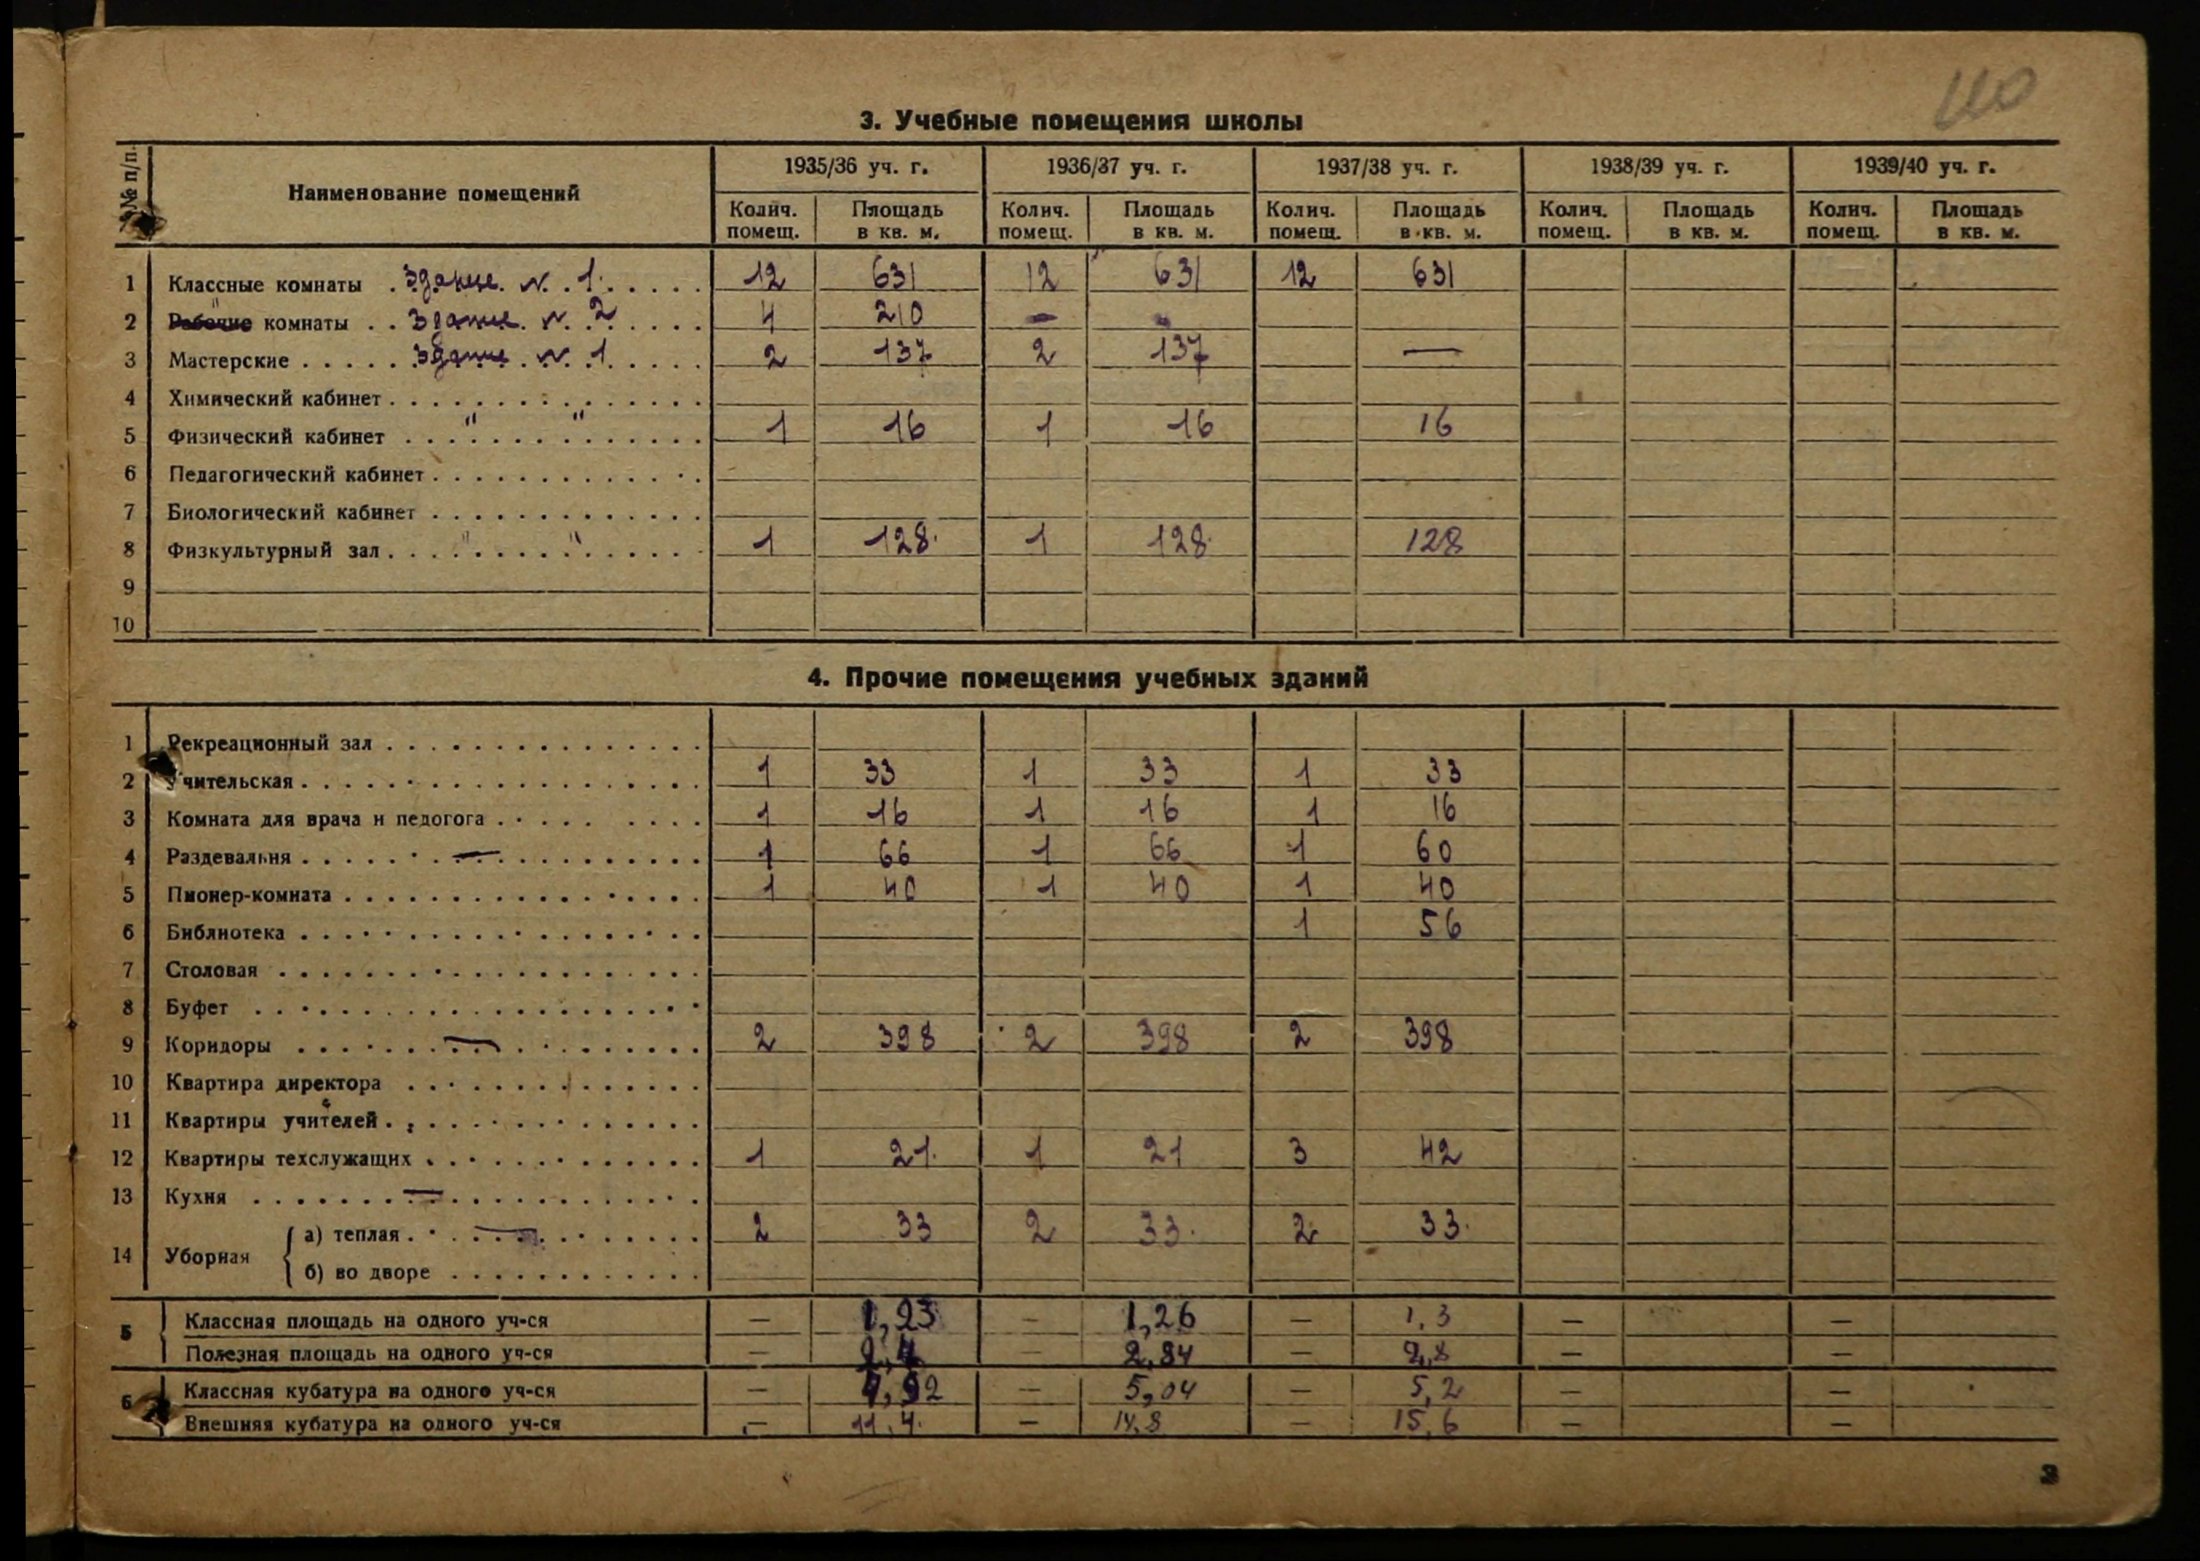 110
3. Учебные помещения школы
№№ п/п. Наименование помещений 1935/36 уч. г. 1936/37 уч. г. 1937/38 уч. г. 1938/39 уч. г. 1939/40 уч. г.
Колич. помещ. Площадь в кв. м. Колич. помещ. Площадь в кв. м. Колич. помещ. Площадь в кв. м. Колич. помещ. Площадь в кв. м. Колич. помещ. Площадь в кв. м.
1 Классные комнаты . здание N. 1. 12 631 12 631 12 631
2 " Рабочие комнаты . . здание N. 2 4 210 — —
3 Мастерские . . . . . здание N. 1 2 137 2 137 —
4 Химический кабинет
5 Физический кабинет " " 1 16 1 16 16
6 Педагогический кабинет
7 Биологический кабинет
8 Физкультурный зал " " 1 128. 1 128. 128
9
10
4. Прочие помещения учебных зданий
1 Рекреационный зал
2 Учительская 1 33 1 33 1 33
3 Комната для врача и педогога 1 16 1 16 1 16
4 Раздевальня — 1 66 1 66 1 60
5 Пионер-комната 1 40 1 40 1 40
6 Библиотека 1 56
7 Столовая
8 Буфет
9 Коридоры — 2 398 2 398 2 398
10 Квартира директора
11 Квартиры учителей
12 Квартиры техслужащих 1 21. 1 21 3 42
13 Кухня —
14 Уборная { а) теплая — 2 33 2 33. 2 33.
б) во дворе
5 { Классная площадь на одного уч-ся — 1,23 — 1,26 — 1,3 — —
Полезная площадь на одного уч-ся — 2,4 — 2,84 — 2,8 — —
6 { Классная кубатура на одного уч-ся — 4,92 — 5,04 — 5,2 — —
Внешняя кубатура на одного уч-ся — 11,4. — 14,8 — 15,6 — —
3